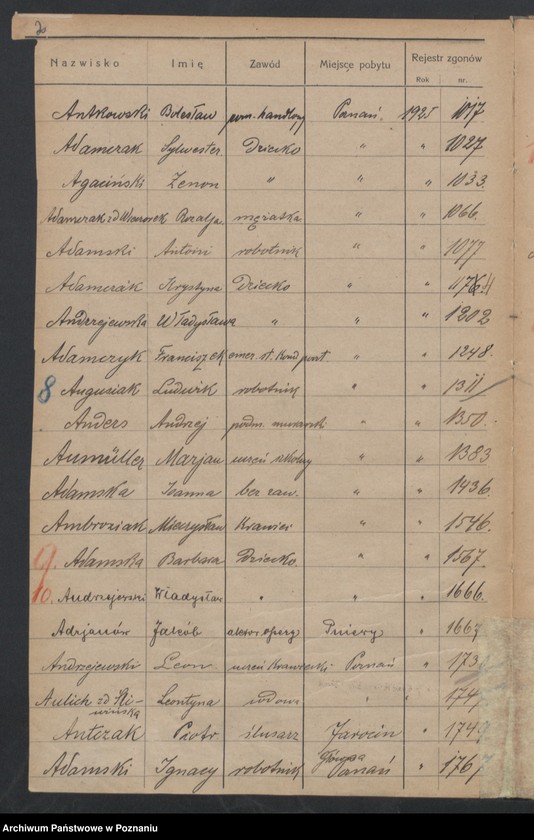 2
Nazwisko Imię Zawód Miejsce pobytu Rejestr zgonów
Rok nr.
Antkowski Bolesław pom. handlowy Poznań. 1925 1017
Adamczak Sylwester Dziecko " " 1027
Agaciński Zenon " " " 1033.
Adamczak zd Rozalja mężatka " " 1066.
Adamski Antoni robotnik " " 1077
Adamczak Krystyna Dziecko " "
Andrzejewska Władysława " " " 1202
Adamczyk Franciszek emer. st. " " 1248.
8 Augusiak Ludwik robotnik " " 1311
Anders Andrzej podm. murarski " " 1350.
Aumüller Marjan uczeń szkolny " " 1383
Adamska Joanna bez zaw. " " 1436.
Ambroziak Mieczysław Krawiec " " 1546.
9. Adamska Barbara Dziecko " " 1567.
10. Andrzejewski Władysław " " " 1666.
Adrjanów Jakób " 1667
Andrzejewski Leon uczeń Krawiecki Poznań " 173
Aulich zd Ki-
wińska Leontyna wdowa " " 174
Antczak Piotr ślusarz Jarocin " 174
Adamski Ignacy robotnik Główna
Poznań " 1767
Archiwum Państwowe w Poznaniu